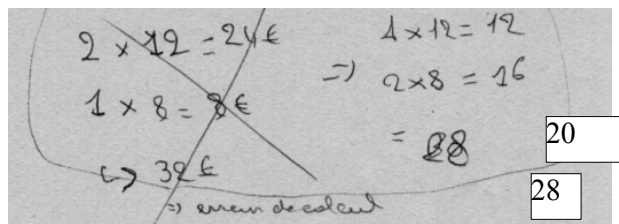 2 x 12 = 24 €
1 x 8 = 8 €
↳ 32 €
=> erreur de calcul
=> 1 x 12 = 12
2 x 8 = 16
= 28
20
28